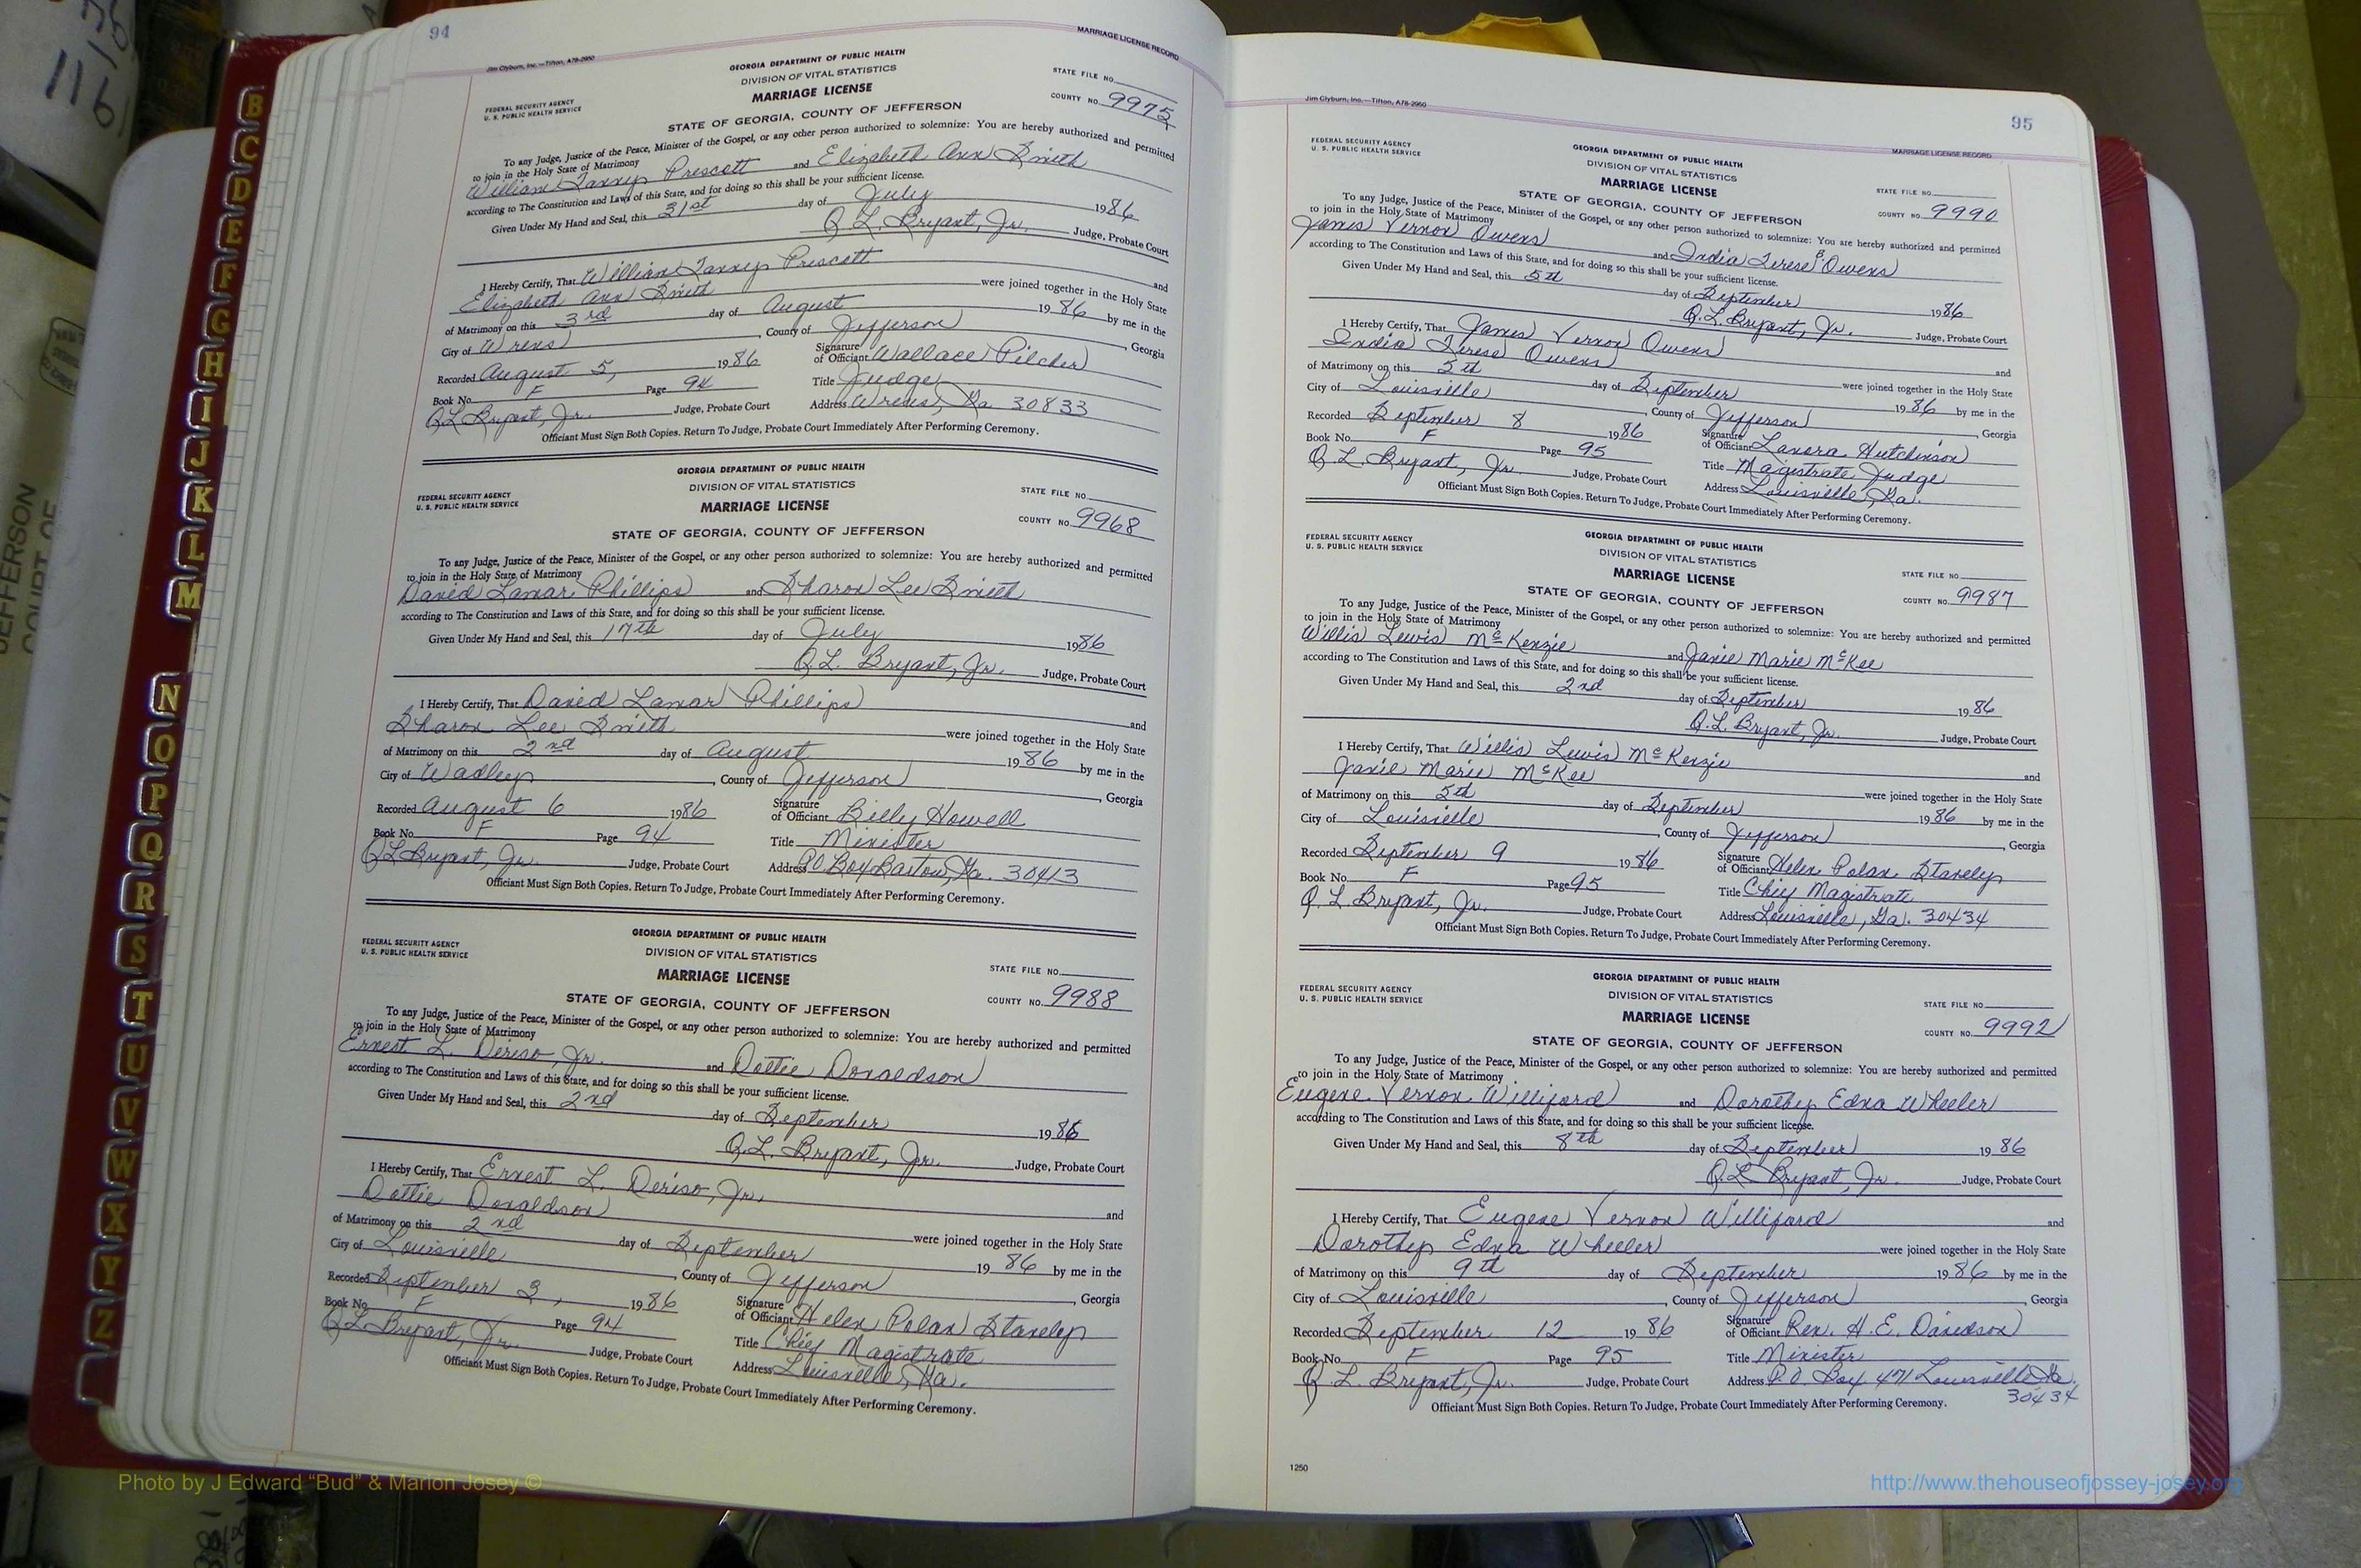 94
Jim Clyburn, Inc.—Tifton, A78-2960
MARRIAGE LICENSE RECORD
GEORGIA DEPARTMENT OF PUBLIC HEALTH
DIVISION OF VITAL STATISTICS
MARRIAGE LICENSE
FEDERAL SECURITY AGENCY
U. S. PUBLIC HEALTH SERVICE
STATE FILE NO.
COUNTY NO. 9975
STATE OF GEORGIA, COUNTY OF JEFFERSON
To any Judge, Justice of the Peace, Minister of the Gospel, or any other person authorized to solemnize: You are hereby authorized and permitted
to join in the Holy State of Matrimony
William Lanny Prescott and Elizabeth Ann Smith
according to The Constitution and Laws of this State, and for doing so this shall be your sufficient license.
Given Under My Hand and Seal, this 31st day of July 1986
Q. L. Bryant, Jr. Judge, Probate Court
I Hereby Certify, That William Lanny Prescott and
Elizabeth Ann Smith were joined together in the Holy State
of Matrimony on this 3rd day of August 1986 by me in the
City of Wrens, County of Jefferson, Georgia
Recorded August 5, 1986 Signature of Officiant Wallace Pilcher
Book No. F Page 94 Title Judge
Q L Bryant, Jr. Judge, Probate Court Address Wrens, Ga 30833
Officiant Must Sign Both Copies. Return To Judge, Probate Court Immediately After Performing Ceremony.
GEORGIA DEPARTMENT OF PUBLIC HEALTH
DIVISION OF VITAL STATISTICS
MARRIAGE LICENSE
FEDERAL SECURITY AGENCY
U. S. PUBLIC HEALTH SERVICE
STATE FILE NO.
COUNTY NO. 9968
STATE OF GEORGIA, COUNTY OF JEFFERSON
To any Judge, Justice of the Peace, Minister of the Gospel, or any other person authorized to solemnize: You are hereby authorized and permitted
to join in the Holy State of Matrimony
David Lamar Phillips and Sharon Lee Smith
according to The Constitution and Laws of this State, and for doing so this shall be your sufficient license.
Given Under My Hand and Seal, this 17th day of July 1986
Q. L. Bryant, Jr. Judge, Probate Court
I Hereby Certify, That David Lamar Phillips and
Sharon Lee Smith were joined together in the Holy State
of Matrimony on this 2nd day of August 1986 by me in the
City of Wadley, County of Jefferson, Georgia
Recorded August 6 1986 Signature of Officiant Billy Howell
Book No. F Page 94 Title Minister
Q L Bryant, Jr. Judge, Probate Court Address P O Box Bartow, Ga. 30413
Officiant Must Sign Both Copies. Return To Judge, Probate Court Immediately After Performing Ceremony.
GEORGIA DEPARTMENT OF PUBLIC HEALTH
DIVISION OF VITAL STATISTICS
MARRIAGE LICENSE
FEDERAL SECURITY AGENCY
U. S. PUBLIC HEALTH SERVICE
STATE FILE NO.
COUNTY NO. 9988
STATE OF GEORGIA, COUNTY OF JEFFERSON
To any Judge, Justice of the Peace, Minister of the Gospel, or any other person authorized to solemnize: You are hereby authorized and permitted
to join in the Holy State of Matrimony
Ernest L. Deriso, Jr. and Dottie Donaldson
according to The Constitution and Laws of this State, and for doing so this shall be your sufficient license.
Given Under My Hand and Seal, this 2nd day of September 1986
Q. L. Bryant, Jr. Judge, Probate Court
I Hereby Certify, That Ernest L. Deriso, Jr. and
Dottie Donaldson were joined together in the Holy State
of Matrimony on this 2nd day of September 1986 by me in the
City of Louisville, County of Jefferson, Georgia
Recorded September 3, 1986 Signature of Officiant Helen Polan Stanely
Book No. F Page 94 Title Chief Magistrate
Q L Bryant, Jr. Judge, Probate Court Address Louisville, Ga.
Officiant Must Sign Both Copies. Return To Judge, Probate Court Immediately After Performing Ceremony.
Jim Clyburn, Inc.—Tifton, A78-2960
95
MARRIAGE LICENSE RECORD
GEORGIA DEPARTMENT OF PUBLIC HEALTH
DIVISION OF VITAL STATISTICS
MARRIAGE LICENSE
FEDERAL SECURITY AGENCY
U. S. PUBLIC HEALTH SERVICE
STATE FILE NO.
COUNTY NO. 9990
STATE OF GEORGIA, COUNTY OF JEFFERSON
To any Judge, Justice of the Peace, Minister of the Gospel, or any other person authorized to solemnize: You are hereby authorized and permitted
to join in the Holy State of Matrimony
James Vernon Owens and India Terese B. Owens
according to The Constitution and Laws of this State, and for doing so this shall be your sufficient license.
Given Under My Hand and Seal, this 5th day of September 1986
Q. L. Bryant, Jr. Judge, Probate Court
I Hereby Certify, That James Vernon Owens and
India Terese Owens were joined together in the Holy State
of Matrimony on this 5th day of September 1986 by me in the
City of Louisville, County of Jefferson, Georgia
Recorded September 8 1986 Signature of Officiant Lanora Hutchinson
Book No. F Page 95 Title Magistrate Judge
Q L. Bryant, Jr. Judge, Probate Court Address Louisville, Ga.
Officiant Must Sign Both Copies. Return To Judge, Probate Court Immediately After Performing Ceremony.
GEORGIA DEPARTMENT OF PUBLIC HEALTH
DIVISION OF VITAL STATISTICS
MARRIAGE LICENSE
FEDERAL SECURITY AGENCY
U. S. PUBLIC HEALTH SERVICE
STATE FILE NO.
COUNTY NO. 9987
STATE OF GEORGIA, COUNTY OF JEFFERSON
To any Judge, Justice of the Peace, Minister of the Gospel, or any other person authorized to solemnize: You are hereby authorized and permitted
to join in the Holy State of Matrimony
Willis Lewis McKenzie and Janie Marie McKee
according to The Constitution and Laws of this State, and for doing so this shall be your sufficient license.
Given Under My Hand and Seal, this 2nd day of September 1986
Q. L. Bryant, Jr. Judge, Probate Court
I Hereby Certify, That Willis Lewis McKenzie and
Janie Marie McKee were joined together in the Holy State
of Matrimony on this 5th day of September 1986 by me in the
City of Louisville, County of Jefferson, Georgia
Recorded September 9 1986 Signature of Officiant Helen Polan Stanely
Book No. F Page 95 Title Chief Magistrate
Q. L. Bryant, Jr. Judge, Probate Court Address Louisville, Ga. 30434
Officiant Must Sign Both Copies. Return To Judge, Probate Court Immediately After Performing Ceremony.
GEORGIA DEPARTMENT OF PUBLIC HEALTH
DIVISION OF VITAL STATISTICS
MARRIAGE LICENSE
FEDERAL SECURITY AGENCY
U. S. PUBLIC HEALTH SERVICE
STATE FILE NO.
COUNTY NO. 9992
STATE OF GEORGIA, COUNTY OF JEFFERSON
To any Judge, Justice of the Peace, Minister of the Gospel, or any other person authorized to solemnize: You are hereby authorized and permitted
to join in the Holy State of Matrimony
Eugene Vernon Williford and Dorothy Edna Wheeler
according to The Constitution and Laws of this State, and for doing so this shall be your sufficient license.
Given Under My Hand and Seal, this 8th day of September 1986
Q. L. Bryant, Jr. Judge, Probate Court
I Hereby Certify, That Eugene Vernon Williford and
Dorothy Edna Wheeler were joined together in the Holy State
of Matrimony on this 9th day of September 1986 by me in the
City of Louisville, County of Jefferson, Georgia
Recorded September 12 1986 Signature of Officiant Rev. H. E. Davidson
Book No. F Page 95 Title Minister
Q. L. Bryant, Jr. Judge, Probate Court Address P.O. Box 471 Louisville Ga. 30434
Officiant Must Sign Both Copies. Return To Judge, Probate Court Immediately After Performing Ceremony.
1250
B
C
D
E
F
G
H
I
J
K
L
M
N
O
P
Q
R
S
T
U
V
W
X
Y
Z
JEFFERSON
COURT OF
Photo by J Edward “Bud” & Marion Josey ©
http://www.thehouseofjossey-josey.org